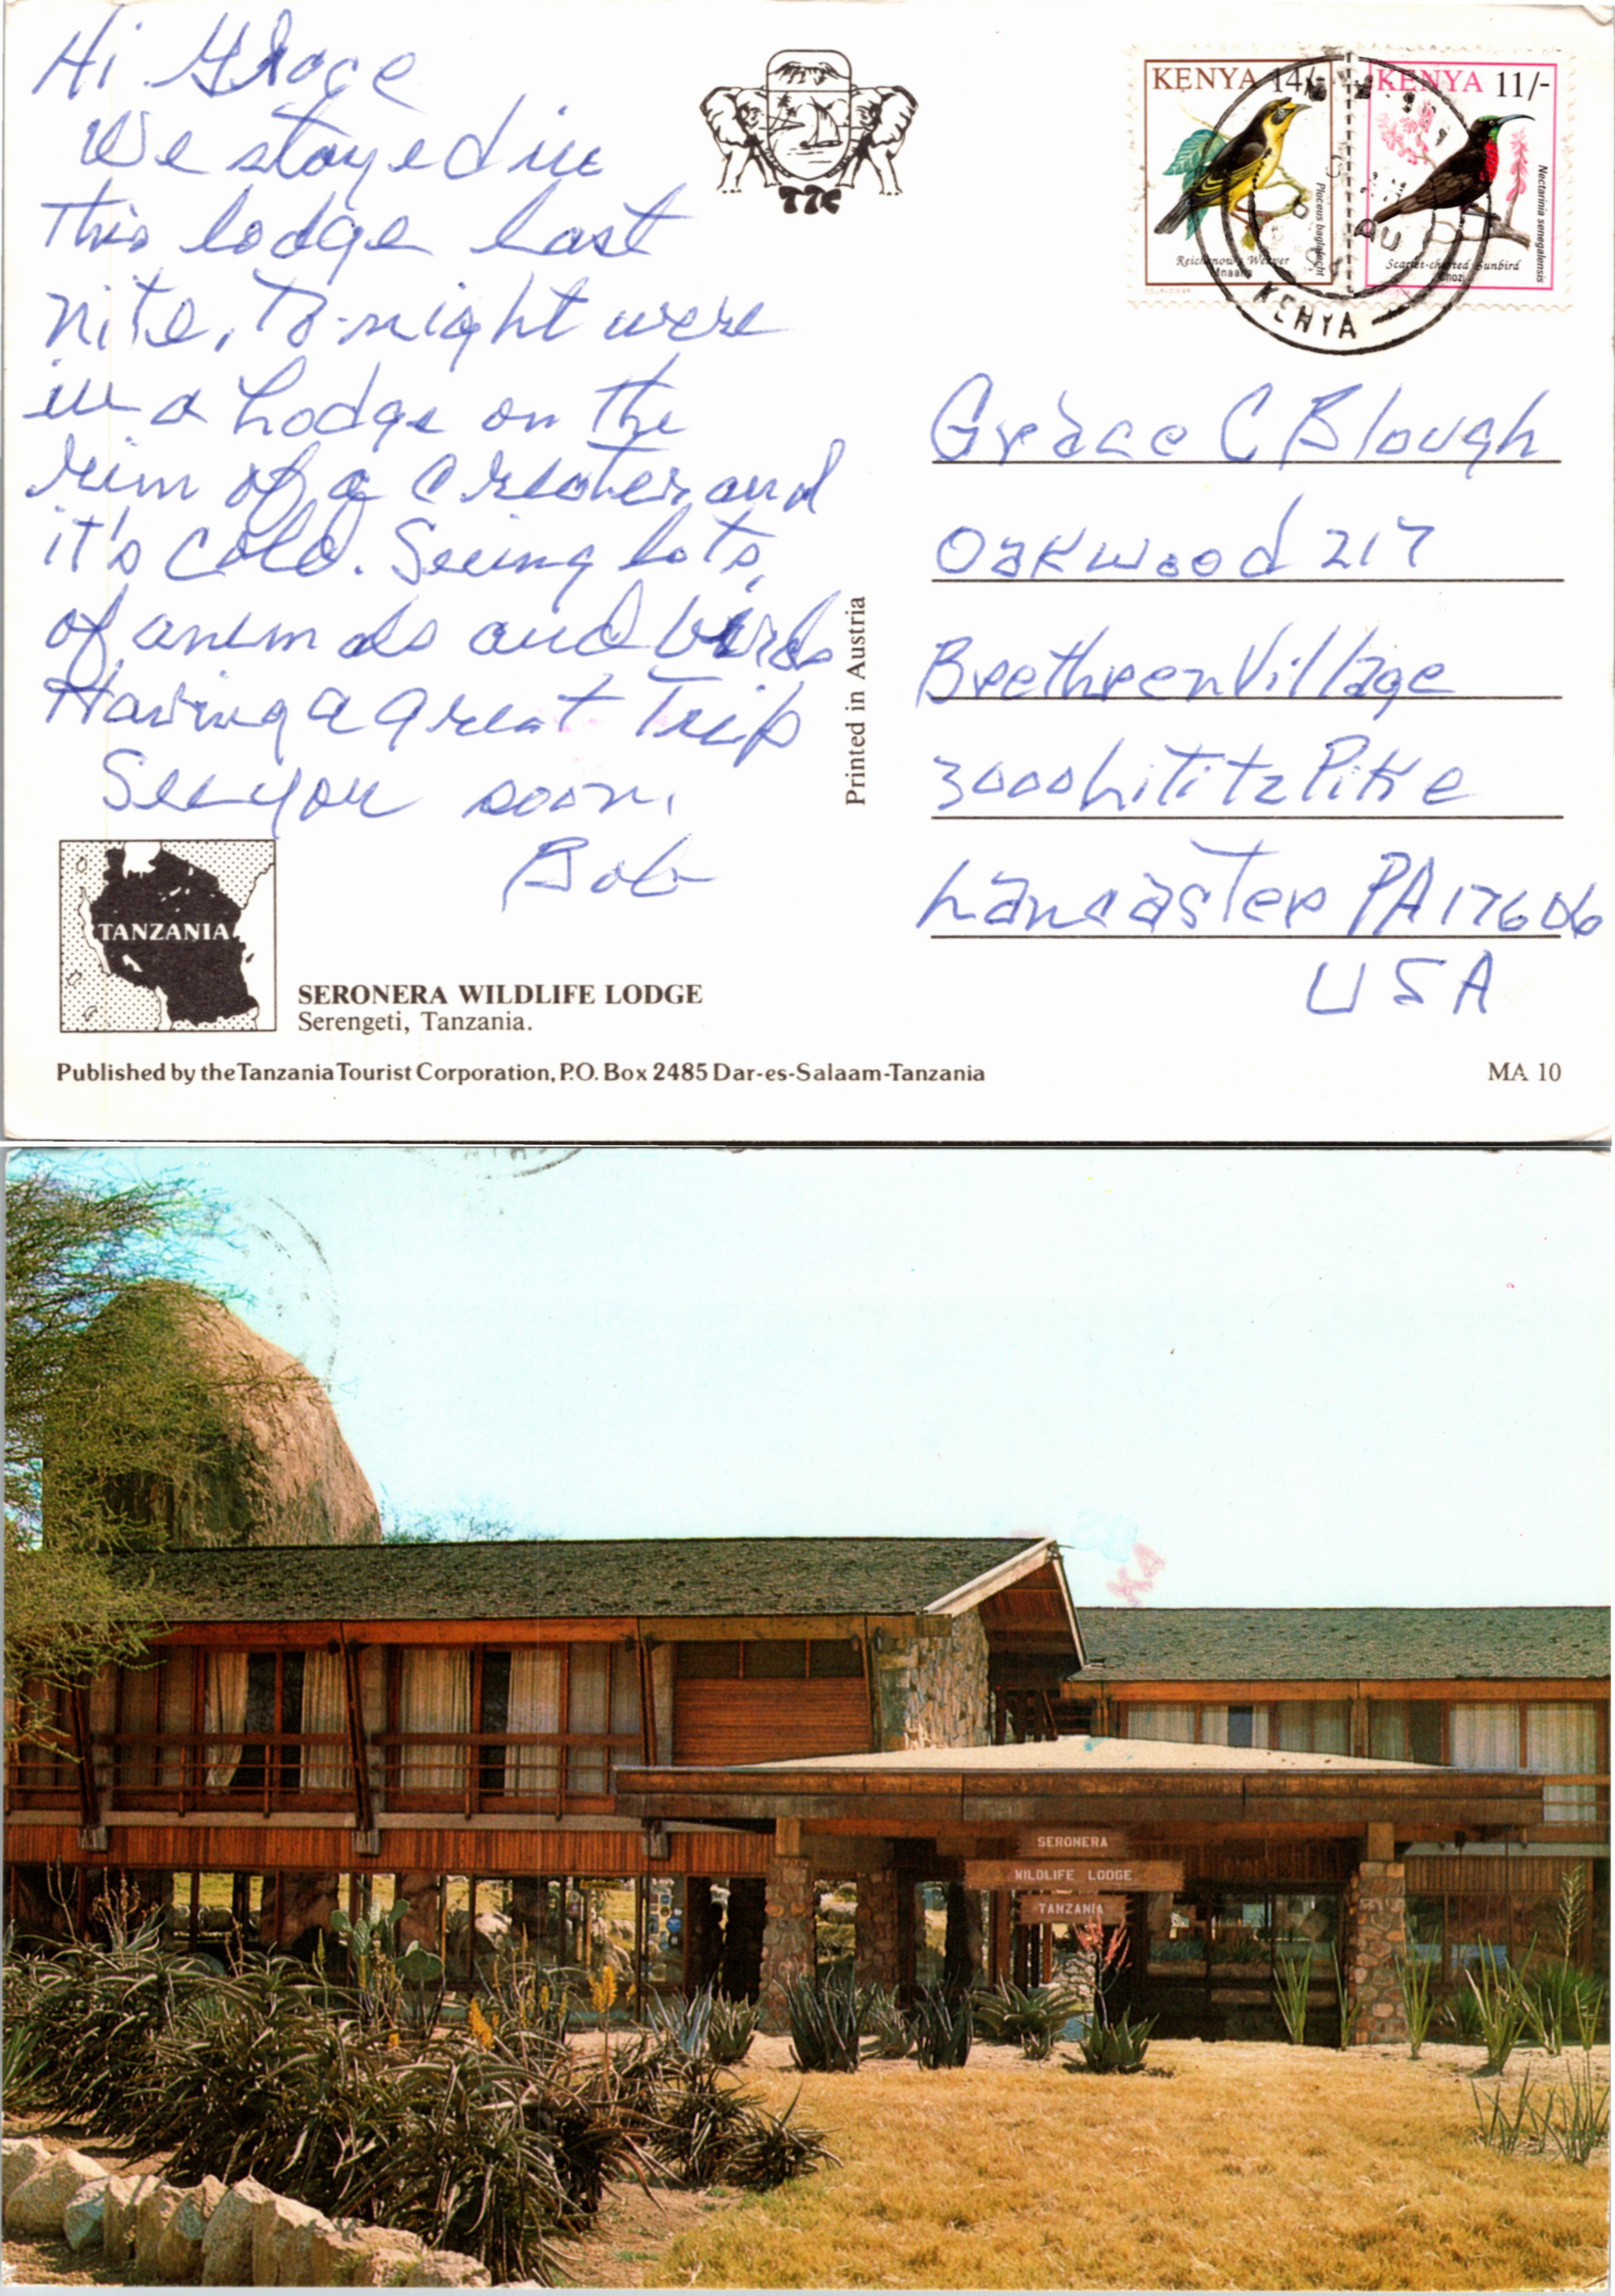 Hi Grace
We stayed in
this lodge last
nite. To-night were
in a Lodge on the
rim of a creater and
it's cold. Seeing lots
of animals and birds
Having a great Trip
See you soon,
Bob
TTC
KENYA 14/-
Ploceus baglafecht
Reichenow's Weaver
Mnaana
KENYA 11/-
Nectarinia senegalensis
Scarlet-chested Sunbird
Chozi
KENYA
Grace C Blough
Oakwood 217
Brethren Village
3000 Lititz Pike
Lancaster PA 17606
USA
Printed in Austria
TANZANIA
SERONERA WILDLIFE LODGE
Serengeti, Tanzania.
Published by the Tanzania Tourist Corporation, P.O. Box 2485 Dar-es-Salaam-Tanzania
MA 10
SERONERA
WILDLIFE LODGE
TANZANIA